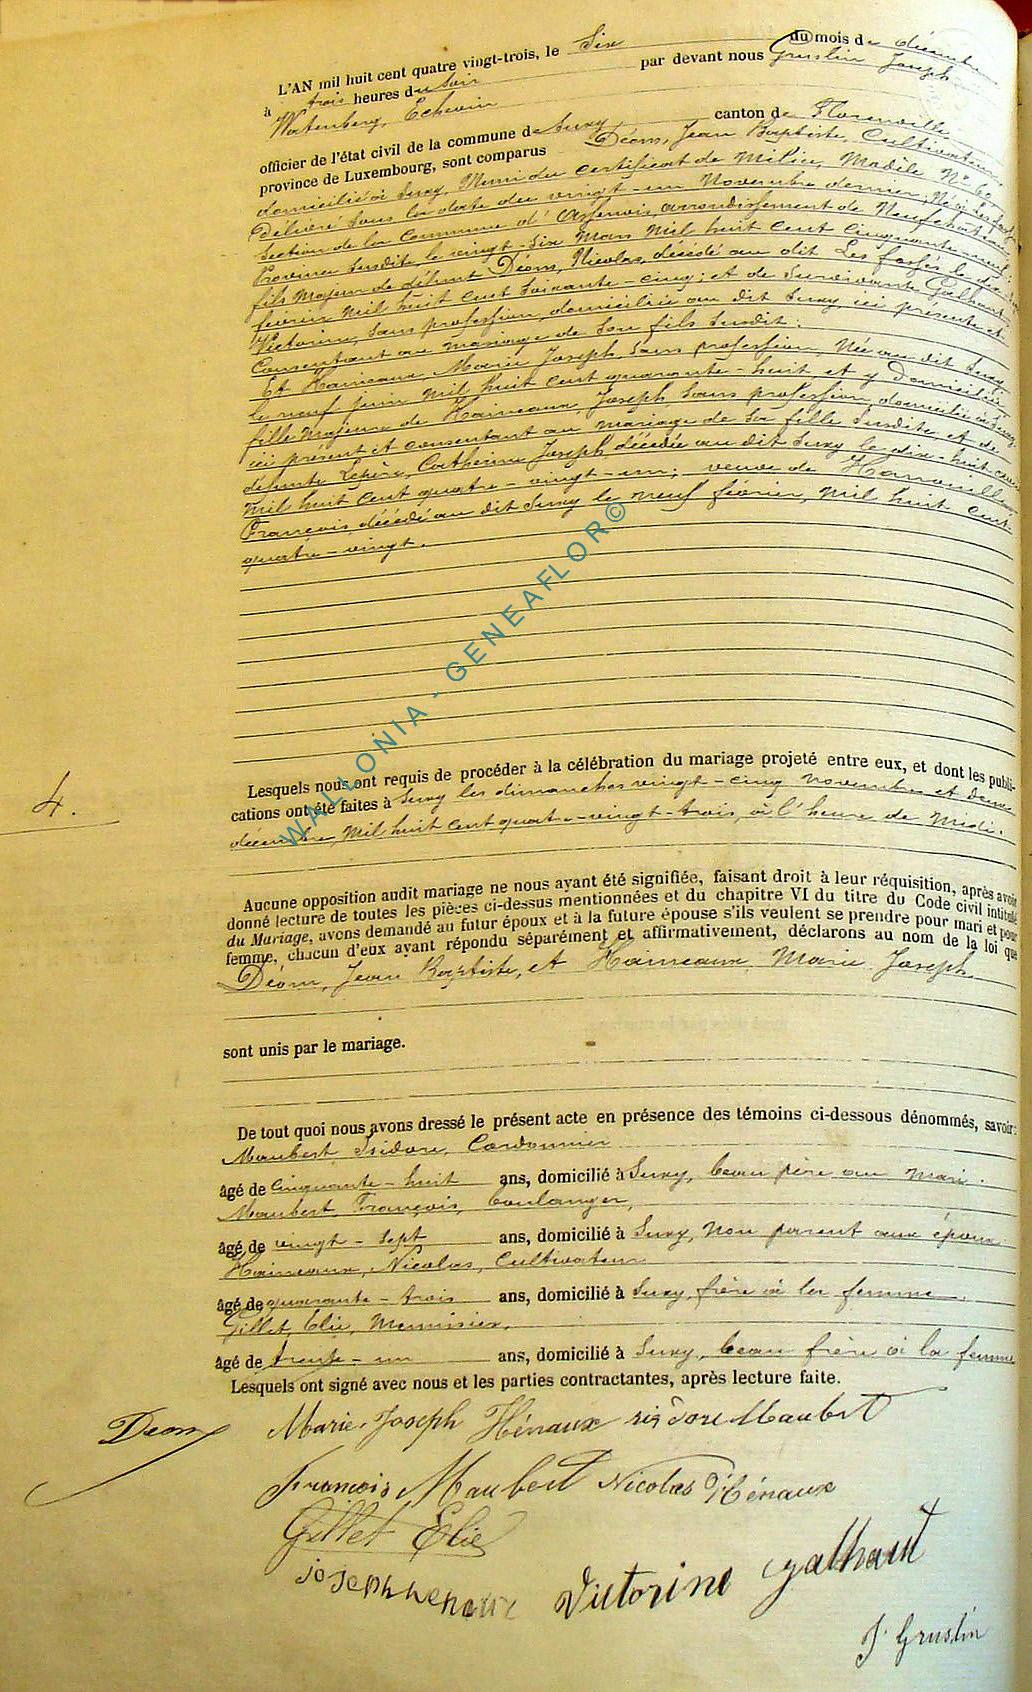 L'AN mil huit cent quatre vingt-trois, le Six du mois de décembre
à trois heures du soir par devant nous Gruslin Joseph
Watenberg, Echevin
officier de l'état civil de la commune de Suxy canton de Florenville
province de Luxembourg, sont comparus Déom, Jean Baptiste, Cultivateur,
domicilié à Suxy, Muni du certificat de Milice, Modèle N°
Délivré sous la date du vingt-un Novembre dernier, Né à Les fossés
Section de la Commune d'Assenois, arrondissement de Neufchâteau
Province susdite, le vingt-six Mars Mil huit cent cinquante neuf
fils Majeur de défunt Déom, Nicolas, décédé au dit Les fossés le
février Mil huit cent soixante-cinq; et de survivante Galhaut
Victorine, sans profession, domiciliée au dit Suxy, ici présente et
Consentant au mariage de son fils susdit;
Et Haineaux Marie Joseph, sans profession, Née au dit Suxy
le neuf juin Mil huit cent quarante-huit, et y domiciliée
fille Majeure de Haineaux, Joseph, sans profession, domicilié à Suxy
ici présent et consentant au mariage de sa fille susdite et de
défunte Catherine Joseph décédée au dit Suxy le dix-huit
Mil huit cent quatre-vingt-un; veuve de
François, décédé au dit Suxy le neuf février, Mil huit cent
quatre-vingt.
Lesquels nous ont requis de procéder à la célébration du mariage projeté entre eux, et dont les publi-
cations ont été faites à Suxy les dimanches vingt-cinq novembre et deux
décembre, Mil huit cent quatre-vingt-trois, à l'heure de Midi.
4.
Aucune opposition audit mariage ne nous ayant été signifiée, faisant droit à leur réquisition, après avoir
donné lecture de toutes les pièces ci-dessus mentionnées et du chapitre VI du titre du Code civil intitulé
du Mariage, avons demandé au futur époux et à la future épouse s'ils veulent se prendre pour mari et pour
femme, chacun d'eux ayant répondu séparément et affirmativement, déclarons au nom de la loi que
Déom, Jean Baptiste, et Haineaux, Marie Joseph
sont unis par le mariage.
De tout quoi nous avons dressé le présent acte en présence des témoins ci-dessous dénommés, savoir:
Maubert Isidore, Cordonnier
âgé de Cinquante-huit ans, domicilié à Suxy, beau père au mari.
Maubert, François, boulanger,
âgé de vingt-sept ans, domicilié à Suxy, non parent aux époux
Haineaux, Nicolas, Cultivateur
âgé de quarante-trois ans, domicilié à Suxy, frère à la femme
Gillet, Elie, Menuisier,
âgé de trente-un ans, domicilié à Suxy, beau frère à la femme
Lesquels ont signé avec nous et les parties contractantes, après lecture faite.
Deom Marie-Joseph Hénaux isidore Maubert
François Maubert Nicolas Hénaux
Gillet Elie
joseph henaux Victorine galhaut
J. Gruslin
WALLONIA - GENEAFLOR ©